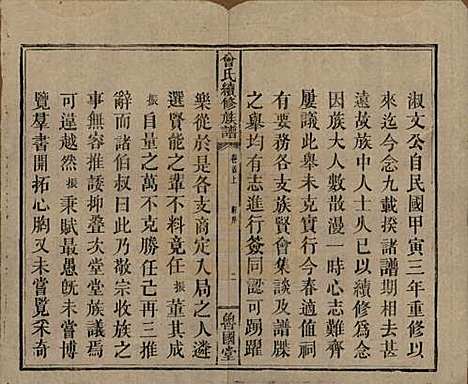 淑文公自民國甲寅三年重修以
來迄今念九載揆諸譜期相去甚
遠故族中人士久已以續修為念
因族大人數散漫一時心志難齊
屢議此舉未克實行今春適值祠
有要務各支族賢會集談及譜牒
之舉均有志進行簽同認可踴躍
曾氏續修族譜
卷首上
新序
二
魯國堂
樂從於是各支商定入局之人遴
選賢能之輩不料竟任振董其成
振自量之萬不克勝任已再三推
辭而諸伯叔曰此乃敬宗收族之
事無容推諉抑疊次堂堂族議焉
可違越然振秉賦最愚既未嘗博
覽羣書開拓心胸又未嘗覽采奇